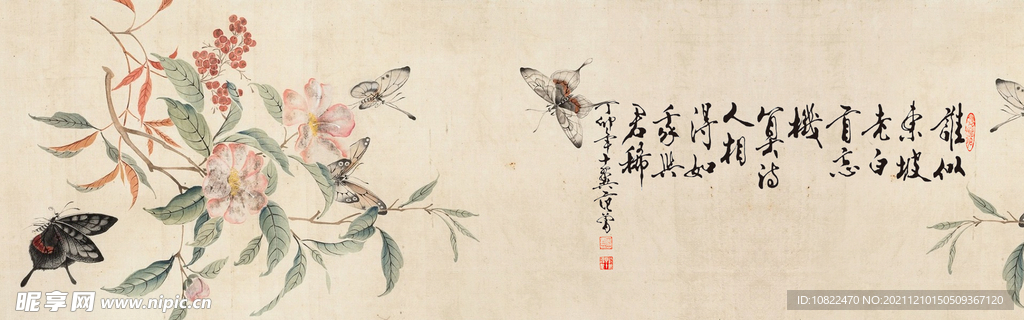 誰似
東坡
老白
首忘
機
算詩
人相
得如
我與
君稀
丁卯年十翼范曾
昵享网 www.nipic.cn
ID:10822470 NO:20211210150509367120